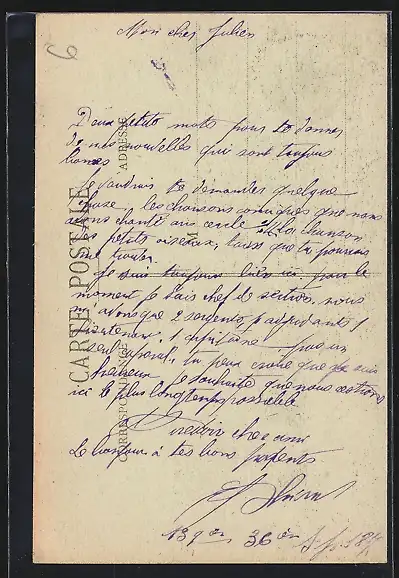 6
Mon cher Julien
Deux petits mots pour te donner
de mes nouvelles qui sont toujours
bonnes
Je voudrais te demander quelque
chose, les chansons comiques que nous
avons chanté au cercle
les petits oiseaux, tu pourrais
me trouver
Je suis toujours bien ici pour le
moment je suis chef de section. nous
n'avons que 2 sergents, 1
1 capitaine pas un
seul caporal, tu peux croire que je suis
heureux je souhaite que nous restions
ici le plus longtemps possible
cher ami
Le bonjour à tes bons parents
139 36
CARTE POSTALE
CORRESPONDANCE
ADRESSE
M